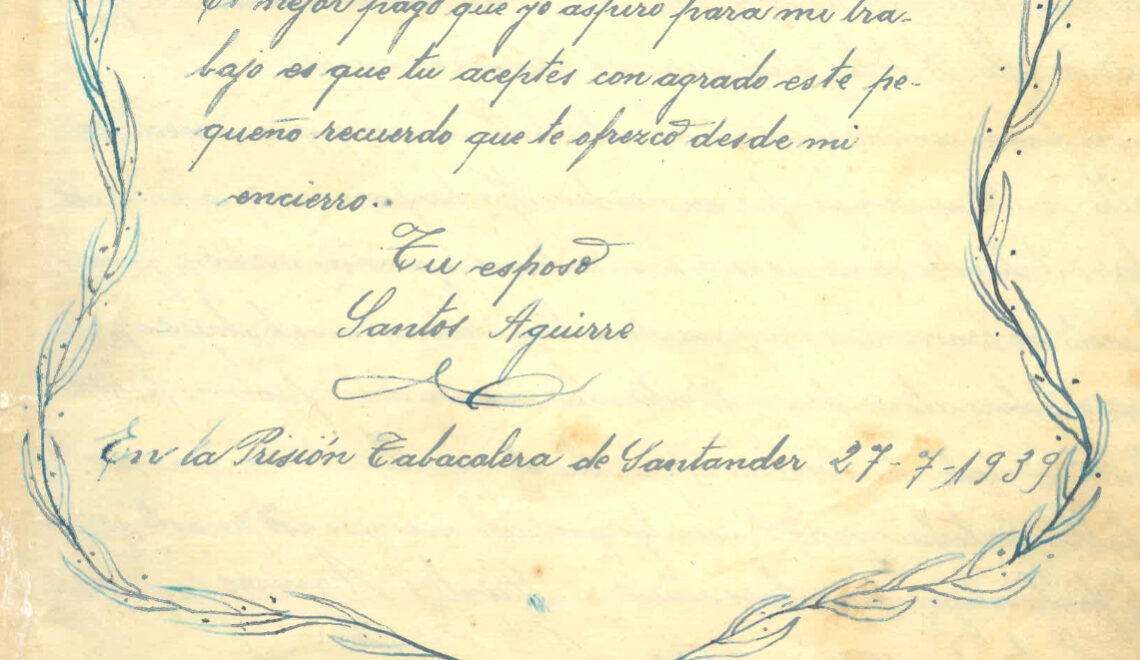 mejor pago que yo aspiro para mi tra-
bajo es que tu aceptes con agrado este pe-
queño recuerdo que te ofrezco desde mi
encierro..
Tu esposo
Santos Aguirre
En la Prisión Tabacalera de Santander 27-7-1939